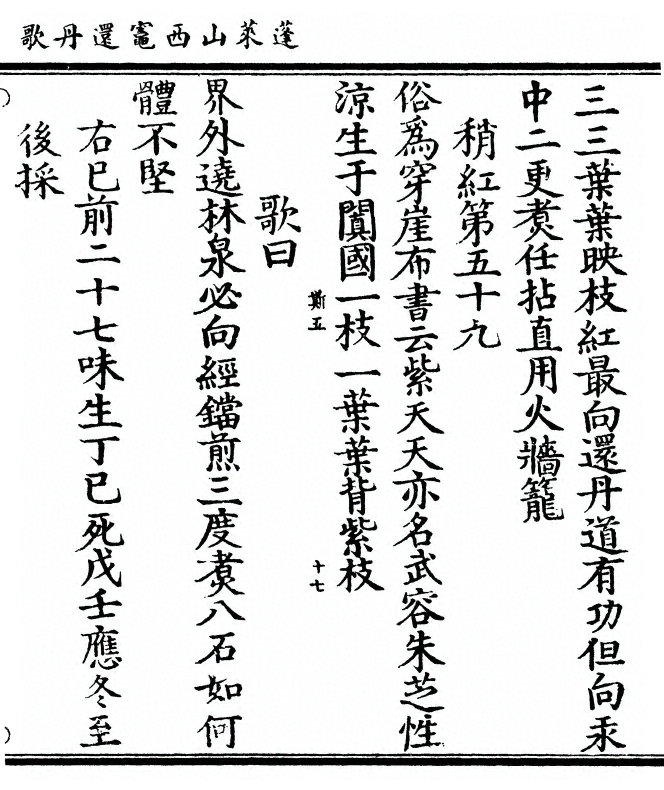 蓬萊山西竈還丹歌
三三葉葉映枝紅最向還丹道有功但向汞
中二更煑任拈直用火牆籠
稍紅第五十九
俗爲穿崖布書云紫天天亦名武容朱芝性
涼生于闐國一枝一葉葉背紫枝
斯五
十七
歌曰
界外遶林泉必向經鐺煎三度煑八石如何
體不堅
右已前二十七味生丁巳死戊壬應冬至
後採